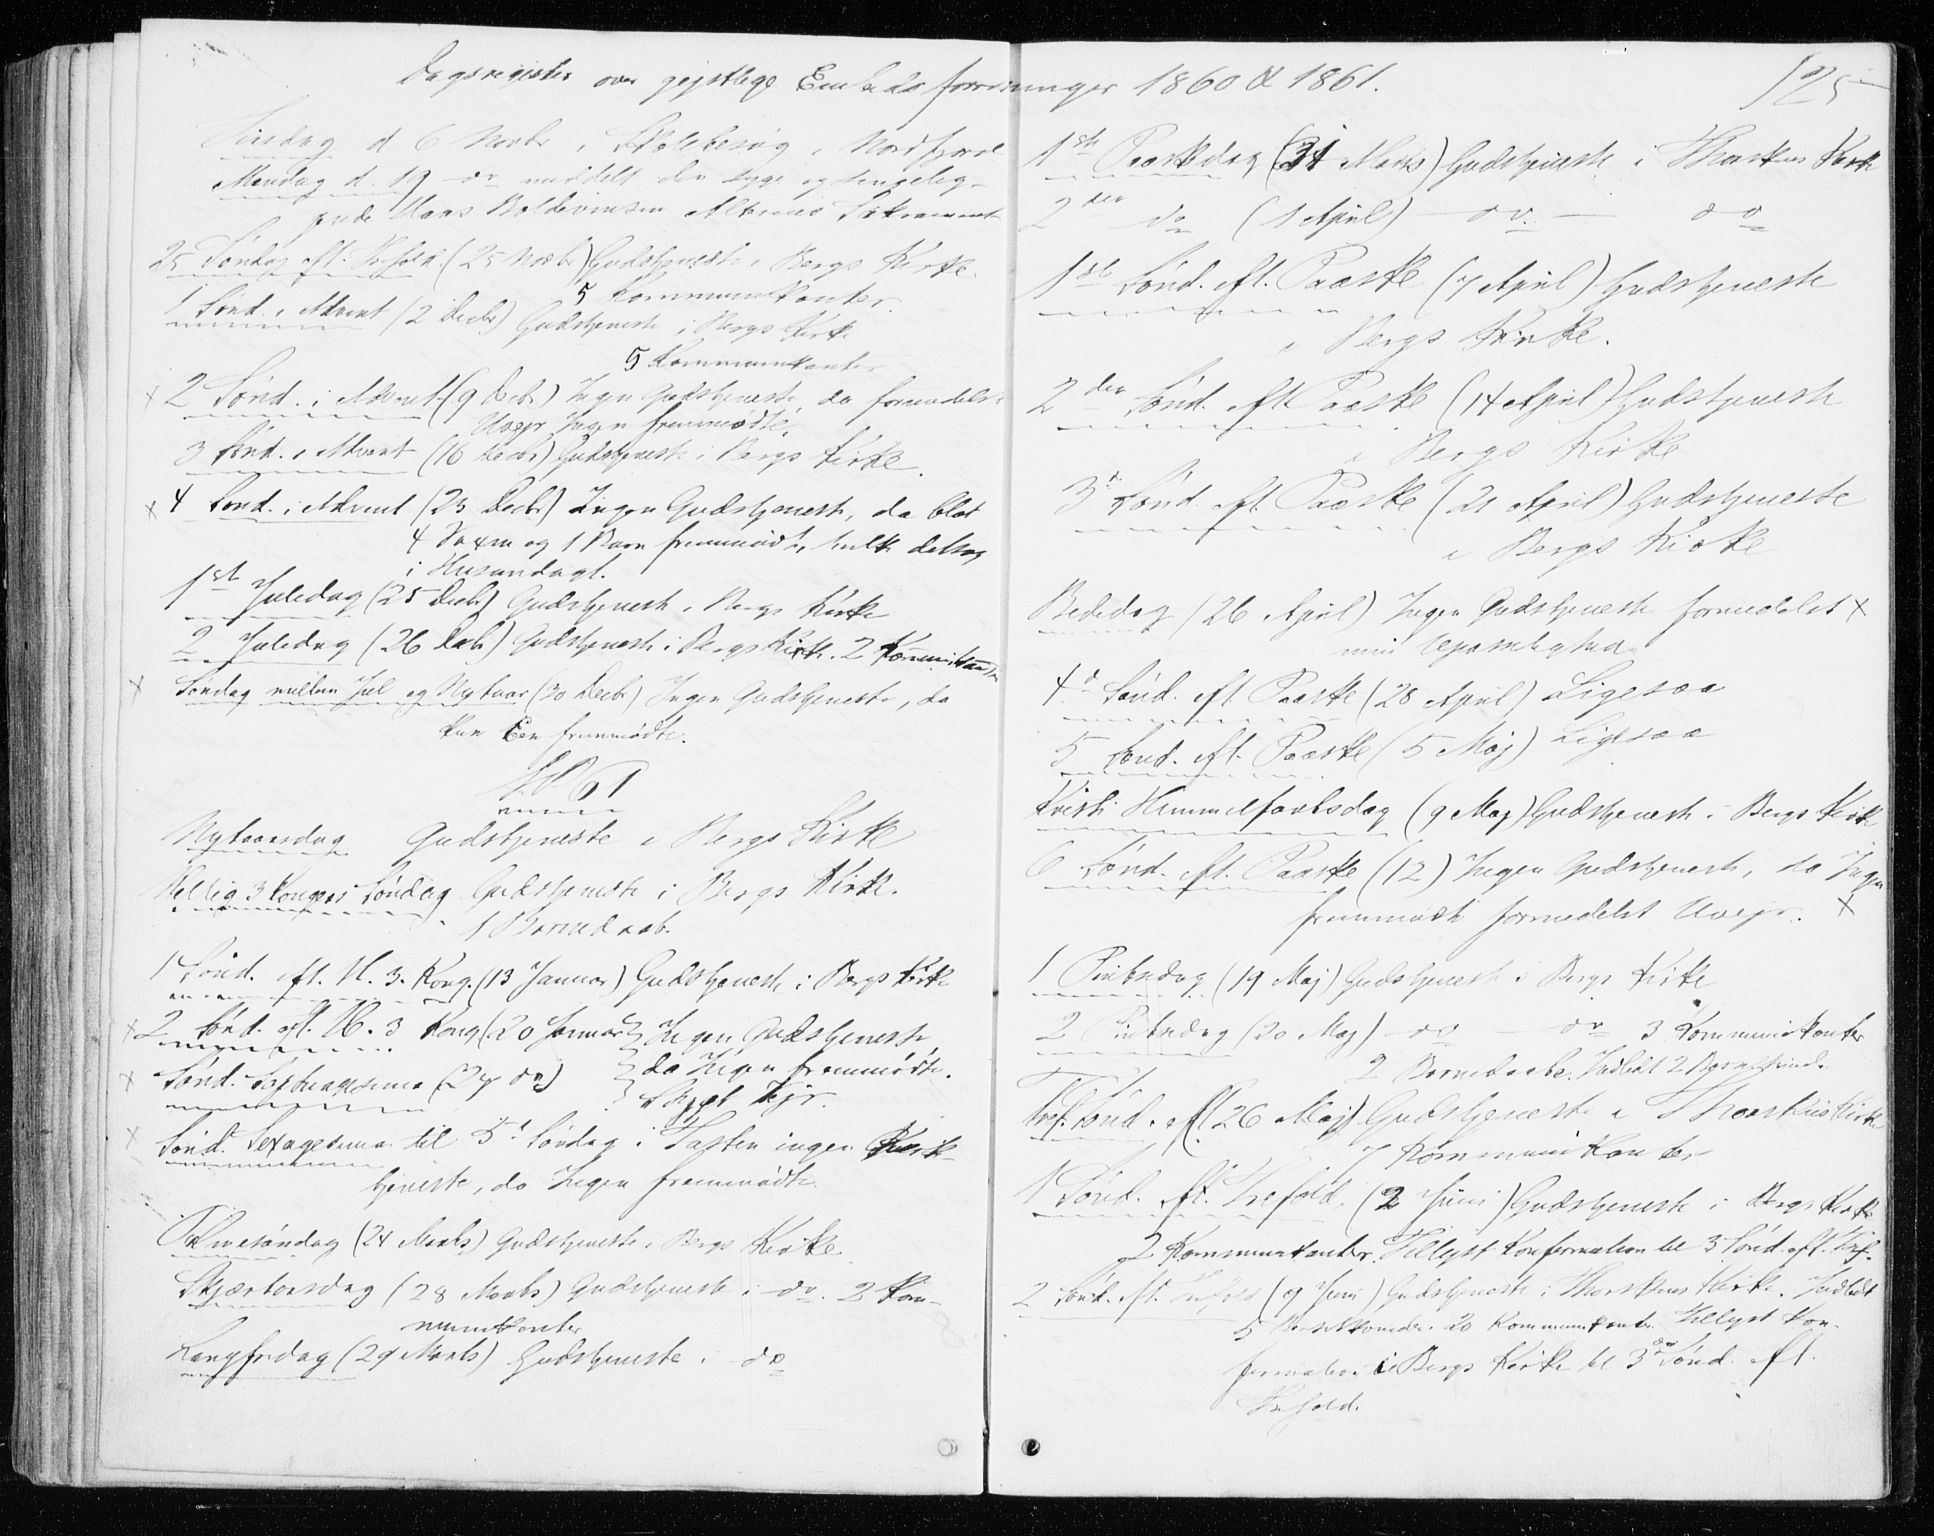 Dagsregister over gejstlige Embedsforretninger 1860 & 1861.
125
Tirsdag d 6 Novbr. Skolebesøg i Nordfjord
Mandag d. 19 do meddelt den syge og sengelig-
gende Alterens Sakrament
25 Søndag eft. Trefold. (25 Novbr) Gudstjeneste i Bergs Kirke
5 Kommunikanter.
1 Sønd. i Advent (2 Decbr) Gudstjeneste i Bergs Kirke
5 Kommunikanter
x 2 Sønd. i Advent (9 Decbr) Ingen Gudstjeneste, da formedelst
Uvejr Ingen fremmødte.
3 Sønd. i Advent (16 Decbr) Gudstjeneste i Bergs Kirke.
x 4 Sønd. i Advent (23 Decbr) Ingen Gudstjeneste, da blot
4 Voxne og 1 Barn fremmødte, hvilke deltog
i Husandagt.
1ste Juledag (25 Decbr) Gudstjeneste i Bergs Kirke
2 Juledag (26 Decbr) Gudstjeneste i Bergs Kirke. 2 Kommunikanter
x Søndag mellem Jul og Nytaar (30 Decbr) Ingen Gudstjeneste, da
kun Een fremmødte.
1861
Nytaarsdag Gudstjeneste i Bergs Kirke
Hellig 3 Kongers Søndag Gudstjeneste i Bergs Kirke.
1 Barnedaab.
1 Sønd. eft. H. 3. Kong. (13 Januar) Gudstjeneste i Bergs Kirke
x 2 Sønd. eft. H. 3 Kong (20 Januar) Ingen Gudstjeneste
x Sønd. Septuagesima (27 do) da Ingen fremmødte.
Vejr.
x Sønd. Sexagesima til 5t Søndag i Fasten ingen Kirke-
tjeneste, da Ingen fremmødte.
Palmesøndag (24 Marts) Gudstjeneste i Bergs Kirke.
Skjærtorsdag (28 Marts) Gudstjeneste i do. 2 Kom-
munikanter
Langfredag (29 Marts) Gudstjeneste i do
1ste Paaskedag (31 Marts) Gudstjeneste i Kirke
2den do (1 April) do. do
1ste Sønd. eft. Paaske (7 April) Gudstjeneste
i Bergs Kirke.
2den Sønd. eft. Paaske (14 April) Gudstjeneste
i Bergs Kirke
3d Sønd. eft. Paaske (21 April) Gudstjeneste
i Bergs Kirke
Bededag (26 April) Ingen Gudstjeneste formedelst x
min Upasselighed
4d Sønd. eft. Paaske (28 April) Ligesaa
5 Sønd. eft. Paaske (5 Maj) Ligesaa
Kristi Himmelfartsdag (9 Maj) Gudstjeneste i Bergs Kirke
6 Sønd. eft. Paaske (12) Ingen Gudstjeneste, da Ingen
fremmødte formedelst Uvejr. x
1 Pintsedag (19 Maj) Gudstjeneste i Bergs Kirke
2 Pintsedag (20 Maj) do do 3 Kommunikanter
2 Barnedaabe. Indledt 2
Tref. Sønd. (26 Maj) Gudstjeneste i Kirke
7 Kommunikanter
1 Sønd. eft. Trefold. (2 Juni) Gudstjeneste i Bergs Kirke
2 Kommunikanter. Tillyst Konfirmation til 3 Sønd. eft. Tref.
2 Sønd. eft. Trefold (9 Juni) Gudstjeneste i Kirke. Indledt
5 Barselkoner. 20 Kommunikanter. Tillyst Kon-
firmation i Bergs Kirke til 3die Sønd. eft.
Trefold.